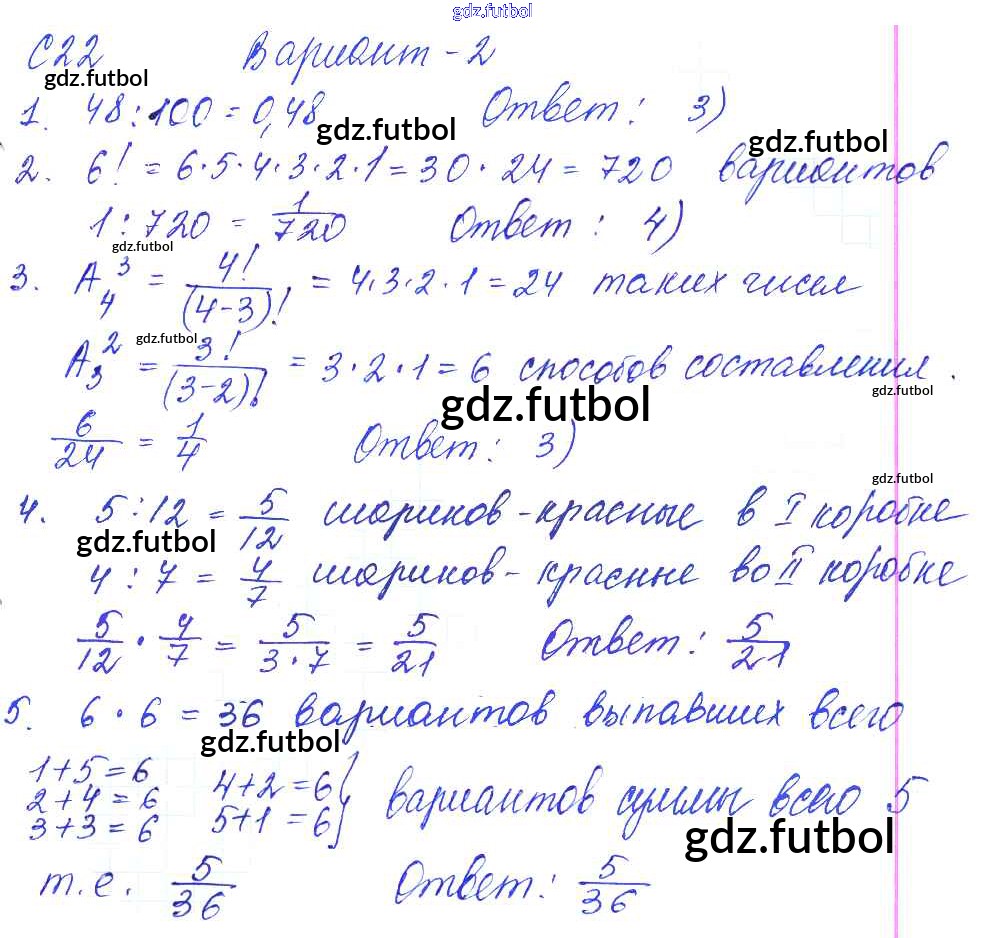 gdz.futbol
С22 Вариант-2
gdz.futbol
1. 48:100=0,48 Ответ: 3)
gdz.futbol
gdz.futbol
2. 6! = 6·5·4·3·2·1=30·24=720 вариантов
1:720 = 1/720 Ответ: 4)
gdz.futbol
3. A₄³ = 4!/(4-3)! = 4·3·2·1=24 таких чисел
gdz.futbol
A₃² = 3!/(3-2)! = 3·2·1=6 способов составления.
gdz.futbol
gdz.futbol
6/24 = 1/4 Ответ: 3)
gdz.futbol
4. 5:12 = 5/12 шариков-красные в I коробке
gdz.futbol
4:7 = 4/7 шариков-красные во II коробке
5/12 · 4/7 = 5/3·7 = 5/21 Ответ: 5/21
5. 6·6=36 вариантов выпавших всего
gdz.futbol
1+5=6 4+2=6
2+4=6 5+1=6 } вариантов суммы всего 5
3+3=6
gdz.futbol
т.е. 5/36 Ответ: 5/36